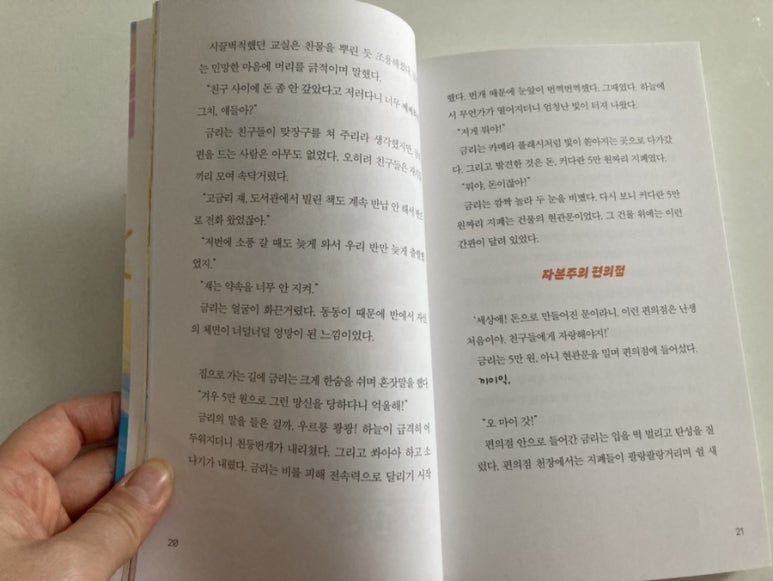 시끌벅적했던 교실은 찬물을 뿌린 듯 조용해졌다.
는 민망한 마음에 머리를 긁적이며 말했다.
"친구 사이에 돈 좀 안 갚았다고 저러다니 너무
그치, 얘들아?"
금리는 친구들이 맞장구를 쳐 주리라 생각했지만,
편을 드는 사람은 아무도 없었다. 오히려 친구들은
끼리 모여 속닥거렸다.
"고금리 쟤, 도서관에서 빌린 책도 계속 반납 안 해서
로 전화 왔었잖아."
"저번에 소풍 갈 때도 늦게 와서 우리 반만 늦게
었지."
"쟤는 약속을 너무 안 지켜."
금리는 얼굴이 화끈거렸다. 동동이 때문에 반에서
의 체면이 너덜너덜 엉망이 된 느낌이었다.
집으로 가는 길에 금리는 크게 한숨을 쉬며 혼잣말을 했다.
"겨우 5만 원으로 그런 망신을 당하다니 억울해!"
금리의 말을 들은 걸까, 우르릉 쾅쾅! 하늘이 급격히 어
두워지더니 천둥번개가 내리쳤다. 그리고 쏴아아 하고 소
나기가 내렸다. 금리는 비를 피해 전속력으로 달리기 시작
20
했다. 번개 때문에 눈앞이 번쩍번쩍했다. 그때였다. 하늘에
서 무언가가 떨어지더니 엄청난 빛이 터져 나왔다.
"저게 뭐야!"
금리는 카메라 플래시처럼 빛이 쏟아지는 곳으로 다가갔
다. 그리고 발견한 것은 돈, 커다란 5만 원짜리 지폐였다.
"뭐야, 돈이잖아!"
금리는 깜짝 놀라 두 눈을 비볐다. 다시 보니 커다란 5만
원짜리 지폐는 건물의 현관문이었다. 그 건물 위에는 이런
간판이 달려 있었다.
자본주의 편의점
'세상에! 돈으로 만들어진 문이라니. 이런 편의점은 난생
처음이야. 친구들에게 자랑해야지!'
금리는 5만 원, 아니 현관문을 밀며 편의점에 들어섰다.
끼이익.
"오 마이 갓!"
편의점 안으로 들어간 금리는 입을 떡 벌리고 탄성을 질
렀다. 편의점 천장에서는 지폐들이 팔랑팔랑거리며 쉴 새
21